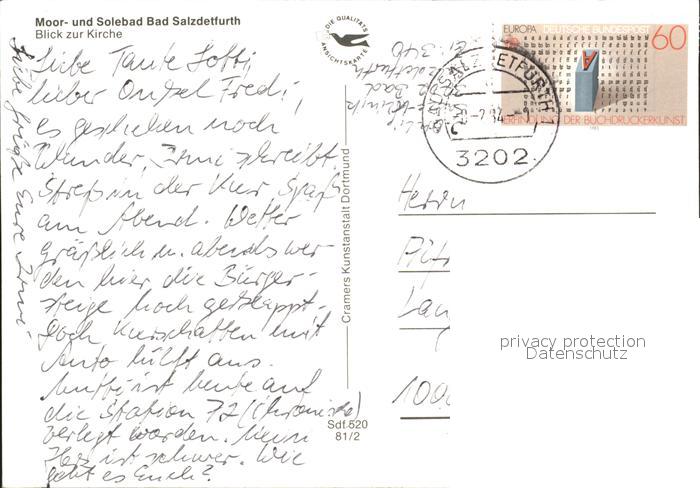 Moor- und Solebad Bad Salzdetfurth
Blick zur Kirche
DIE QUALITÄTS
ANSICHTSKARTE
Liebe Tante Lotti,
lieber Onkel Fredi,
es geschehen noch
Wunder, Irmi schreibt.
Streß in der Kur, Spaß
am Abend. Wetter
gräßlich u. abends wer
den hier die Bürger-
steige hoch geklappt.
Doch Kurschatten mit
Auto hilft aus.
Mutti ist heute auf
die Station 72 (Chronische)
verlegt worden. Mein
Herz ist schwer. Wie
geht es Euch?
Liebe Grüße Eure Irmi
Cramers Kunstanstalt Dortmund
Sdf 520
81/2
EUROPA DEUTSCHE BUNDESPOST 60
ERFINDUNG DER BUCHDRUCKERKUNST
1983
BAD SALZDETFURTH 1
3202
Herrn
privacy protection
Datenschutz